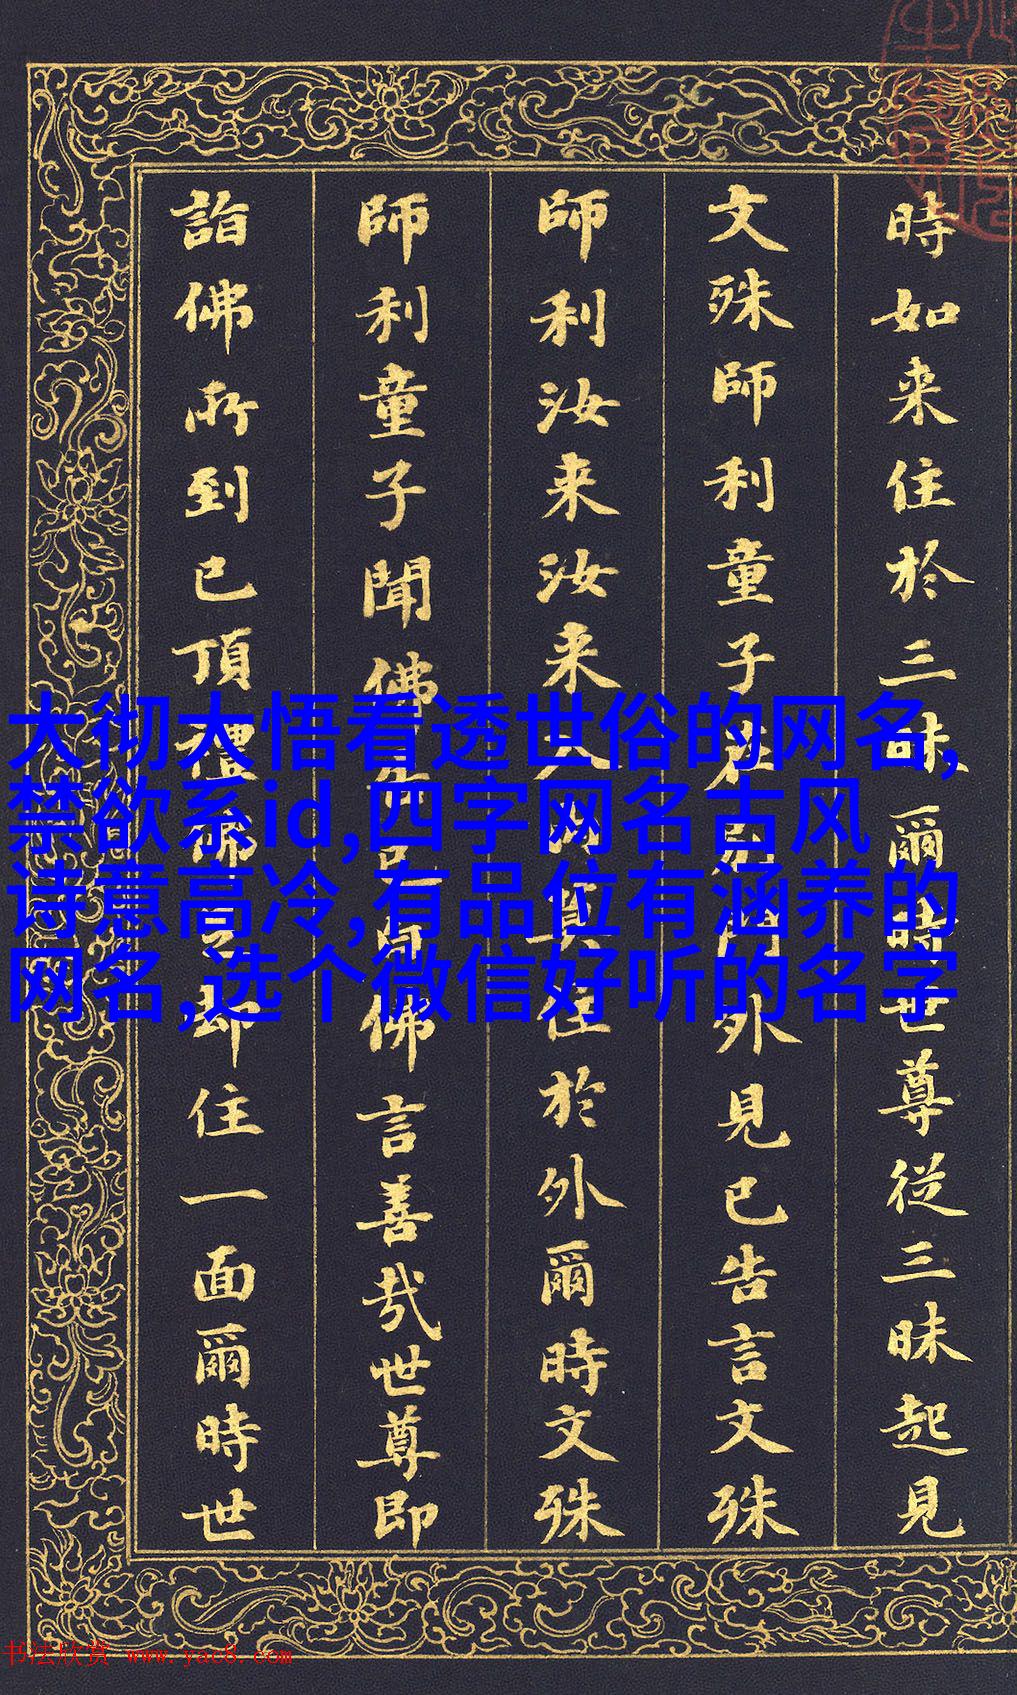 時如来住於三昧爾時世尊従三昧起見
文殊師利童子門外見已告言文殊
師利汝来汝来入内莫住於外爾時文殊
師利童子聞佛佛言善哉世尊即
詣佛所到已頂禮佛足却住一面爾時世
大彻大悟看透世俗的网名,
禁欲系id,四字网名古风
诗意高冷,有品位有涵养的
网名,选个微信好听的名字
书法欣赏 www.yac8.com